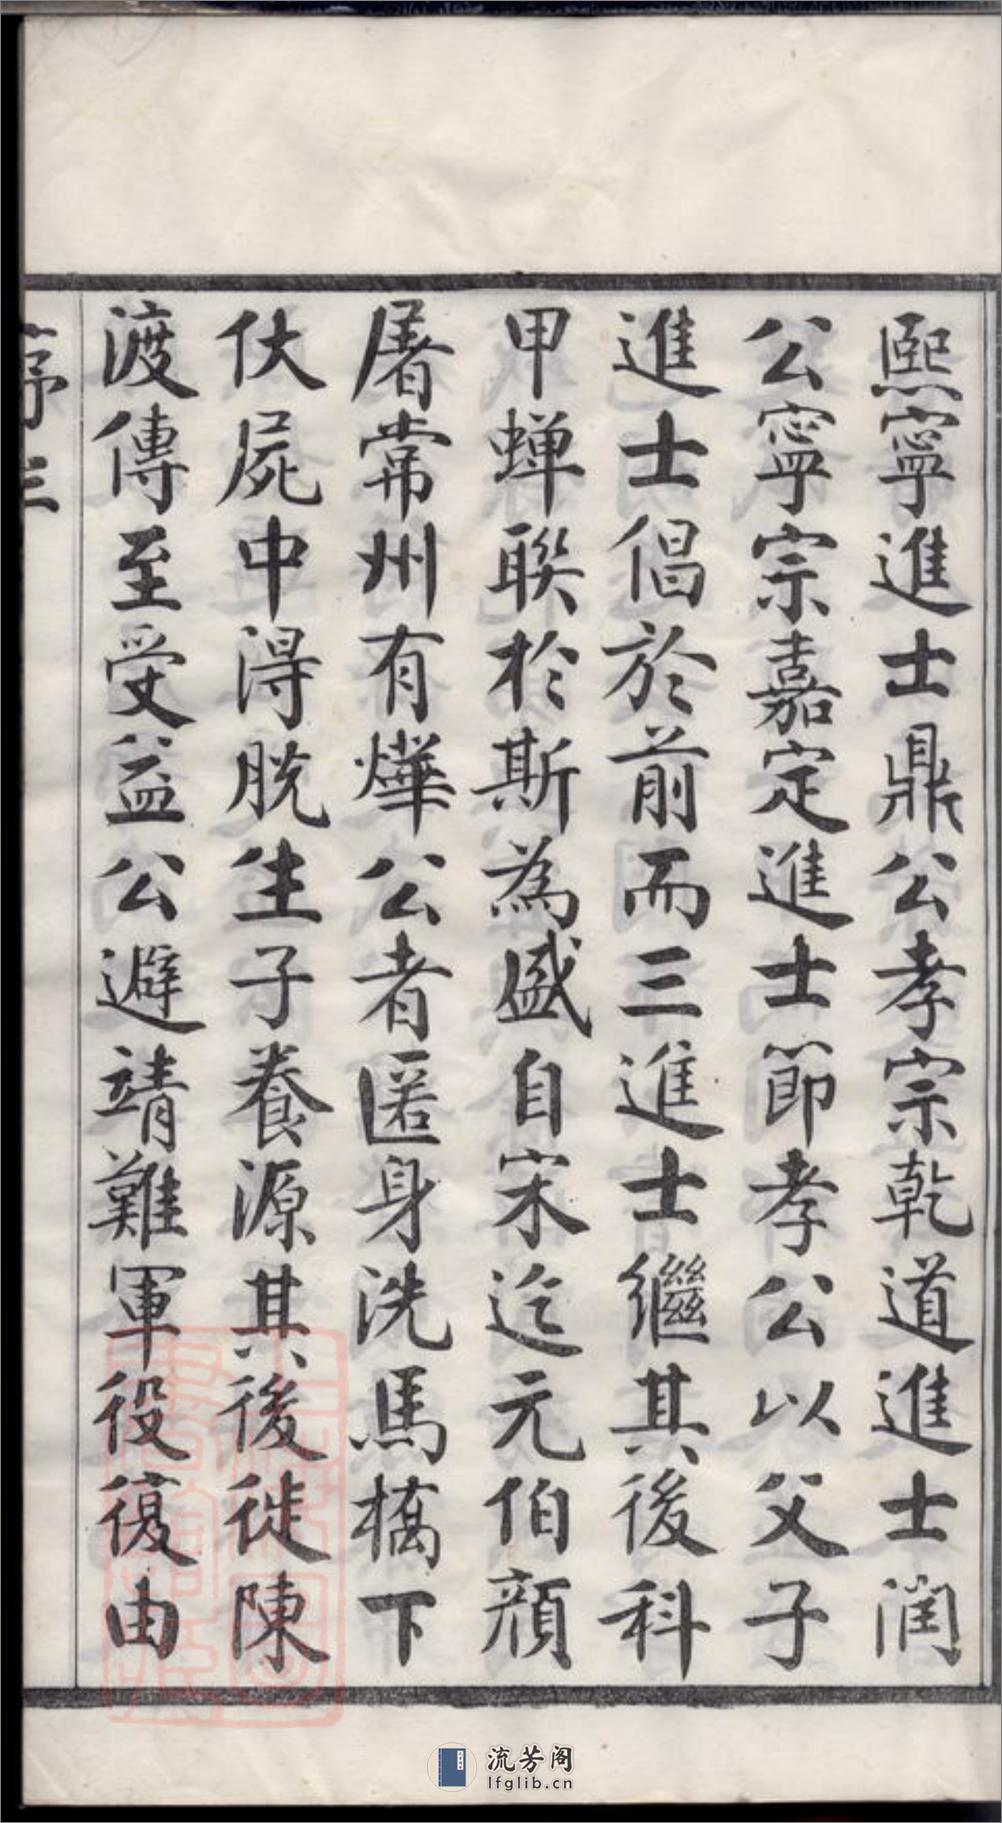 熙寧進士鼎公孝宗乾道進士潤
公寧宗嘉定進士節孝公以父子
進士倡於前而三進士繼其後科
甲蟬聯於斯為盛自宋迄元伯顏
屠常州有燁公者匿身洗馬橋下
伏屍中得脫生子養源其後徙陳
渡傳至受益公避靖難軍役復由
序 三
流芳阁
lfglib.cn